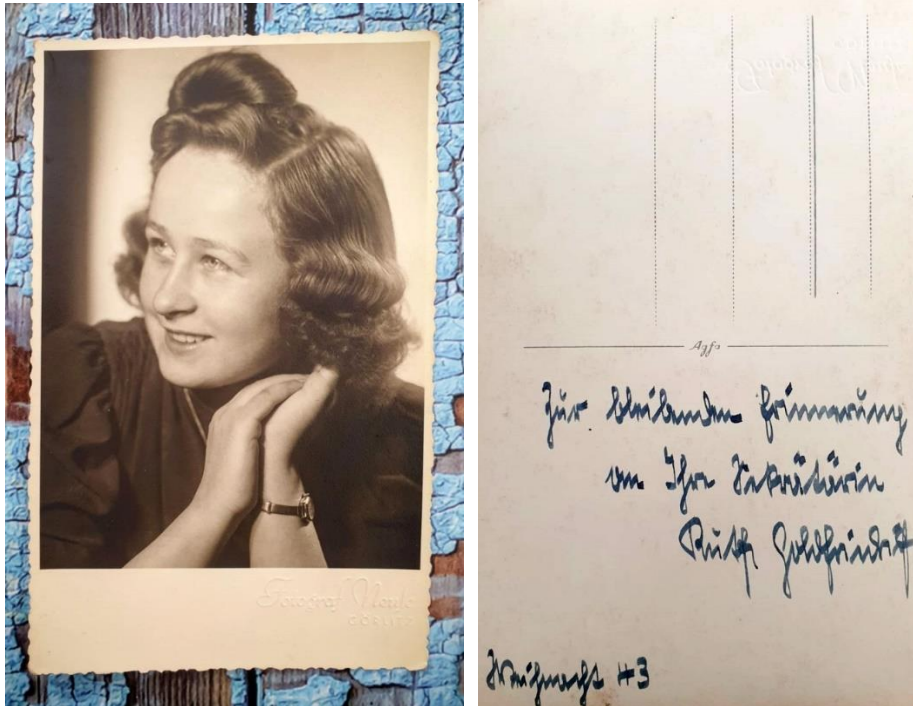 Fotograf
GÖRLITZ
Agfa
Zur bleibenden Erinnerung
an Ihre Sekretärin
Ruth
Weihnacht 43